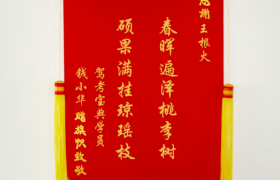 感谢王根火
春晖遍泽桃李树
硕果满挂琼瑶枝
驾考宝典学员
钱小华赠旗帜致敬